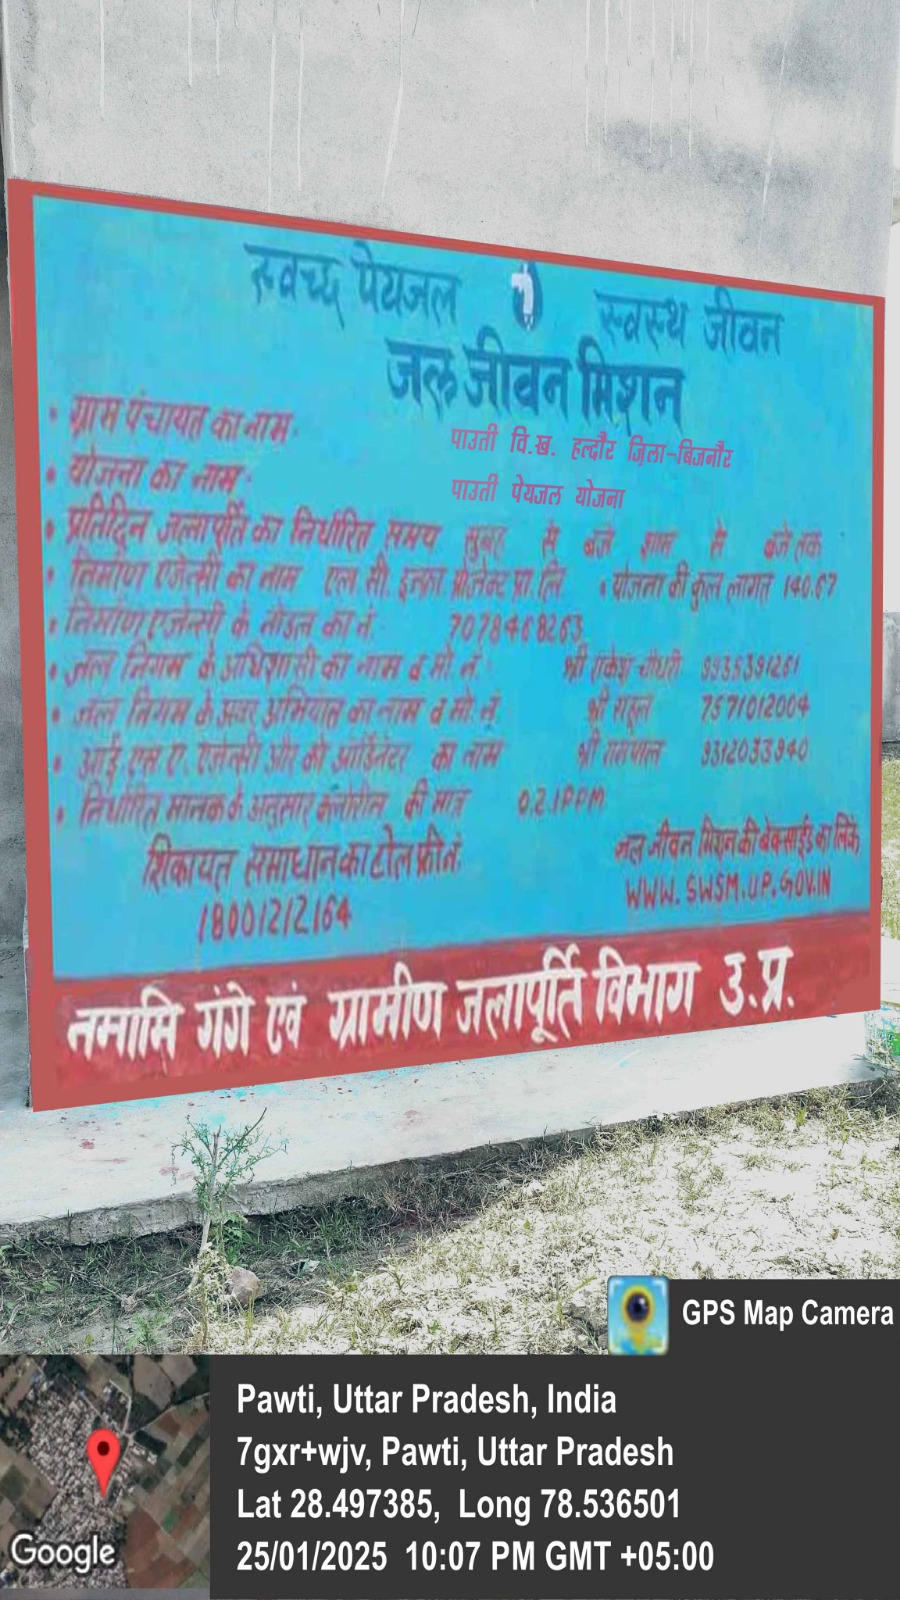 स्वच्छ पेयजल स्वस्थ जीवन
जल जीवन मिशन
• ग्राम पंचायत का नाम - पाउती वि.ख. हल्दौर ज़िला-बिजनौर
• योजना का नाम - पाउती पेयजल योजना
• प्रतिदिन जलापूर्ति का निर्धारित समय सुबह से बजे शाम से बजे तक
• निर्माण एजेन्सी का नाम एल सी. इन्फ्रा प्रोजेक्ट प्रा. लि • योजना की कुल लागत 140.67
• निर्माण एजेन्सी के नोडल का नं. 7078468263
• जल निगम के अधिशासी का नाम व मो. नं. श्री राकेश चौधरी
• जल निगम के अवर अभियन्ता का नाम व मो. नं. श्री राहुल 7571012004
• आई. एस. ए. एजेन्सी और को आर्डिनेटर का नाम श्री रामपाल 9312033940
• निर्धारित मानक के अनुसार क्लोरीन की मात्र 0.2.1PPM
शिकायत समाधान का टोल फ्री नं. जल जीवन मिशन की बेवसाईड का लिंक
18001212164 WWW.SWSM.UP.GOV.IN
नमामि गंगे एवं ग्रामीण जलापूर्ति विभाग उ.प्र.
GPS Map Camera
Pawti, Uttar Pradesh, India
7gxr+wjv, Pawti, Uttar Pradesh
Lat 28.497385, Long 78.536501
25/01/2025 10:07 PM GMT +05:00
Google